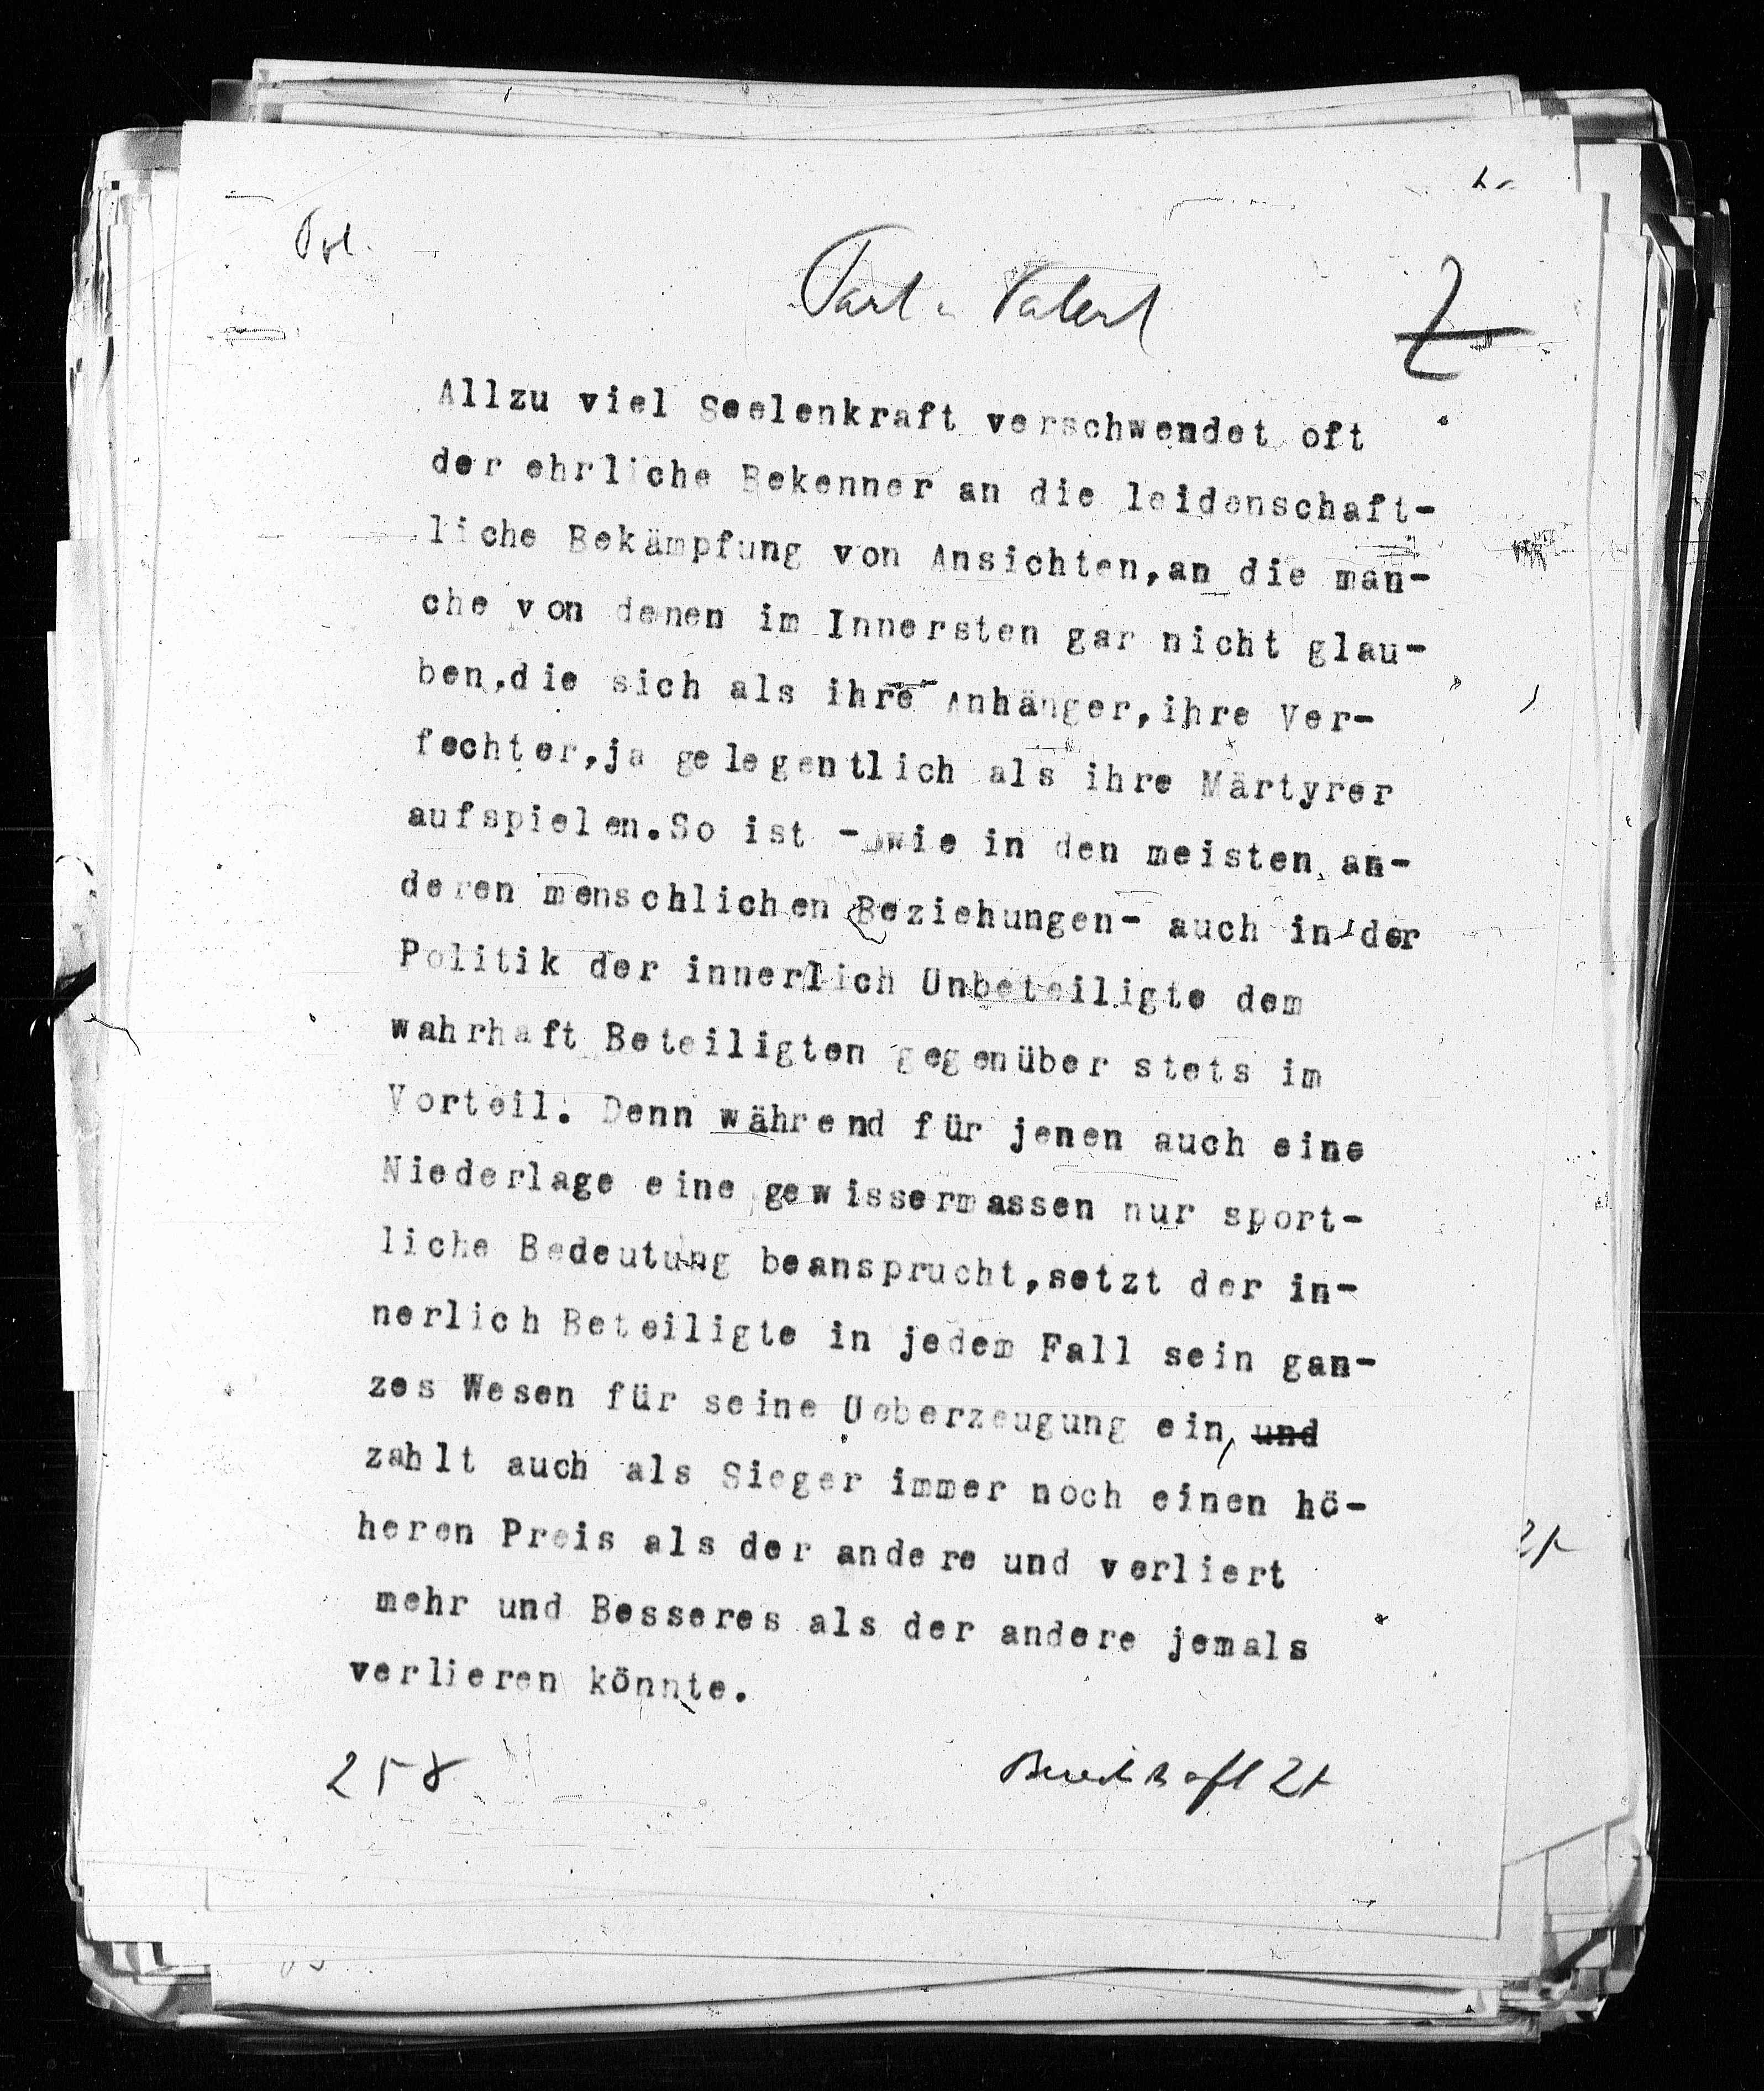 Allzu viel Seelenkraft verschwendet oft
der ehrliche Bekenner an die leidenschaft-
liche Bekämpfung von Ansichten,an die man-
che von denen im Innersten gar nicht glau-
ben,die sich als ihre Anhänger,ihre Ver-
fechter,ja gelegentlich als ihre Märtyrer
aufspielen.So ist - wie in den meisten an-
deren menschlichen Beziehungen- auch in der
Politik der innerlich Unbeteiligte dem
wahrhaft Beteiligten gegenüber stets im
Vorteil. Denn während für jenen auch eine
Niederlage eine gewissermassen nur sport-
liche Bedeutung beansprucht,setzt der in-
nerlich Beteiligte in jedem Fall sein gan-
zes Wesen für seine Ueberzeugung ein, und
zahlt auch als Sieger immer noch einen hö-
heren Preis als der andere und verliert
mehr und Besseres als der andere jemals
verlieren könnte.
258